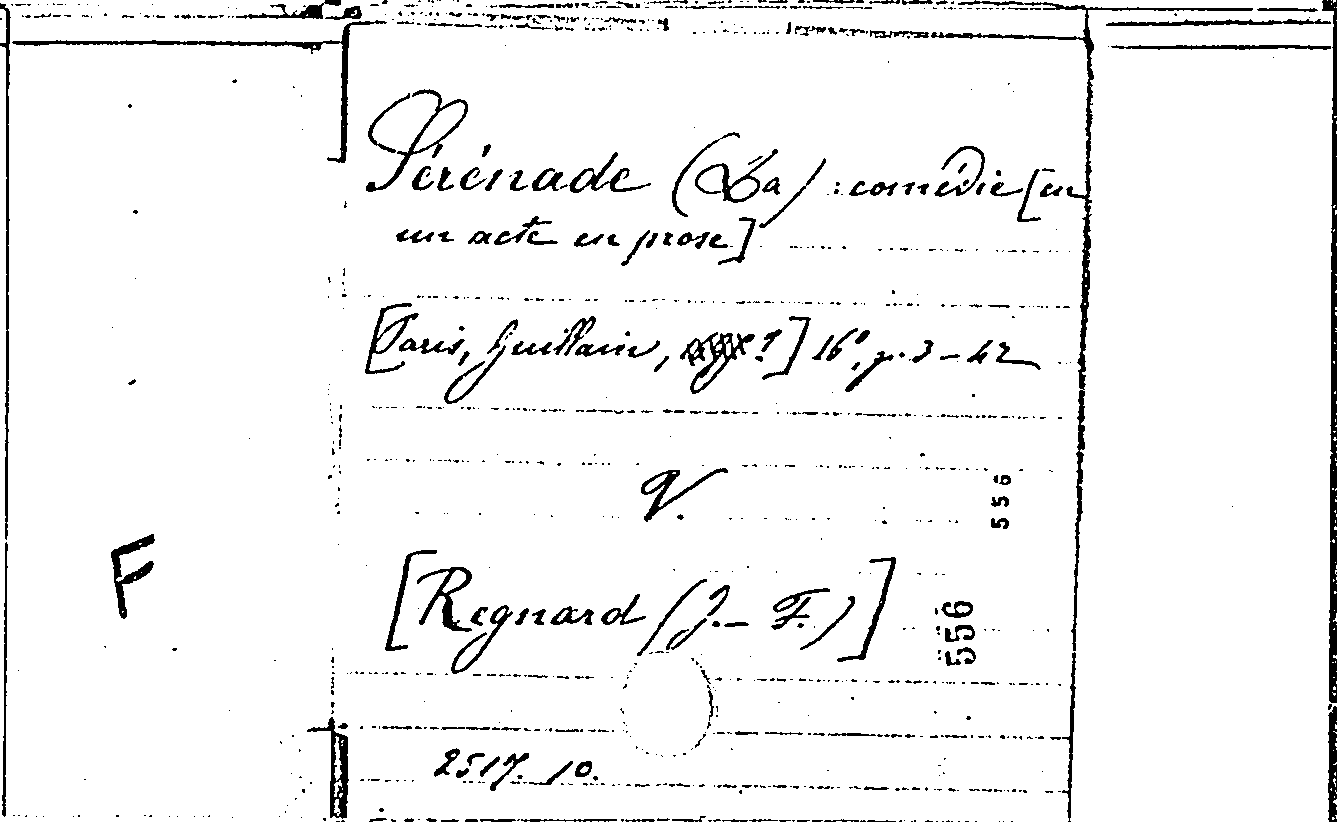 Sérénade (La) : comédie [en
un acte en prose]
[Paris, Guillain, ?] 16º, p. 3-42
V.
556
[Regnard (J.-F.)]
556
F
2517. 10.